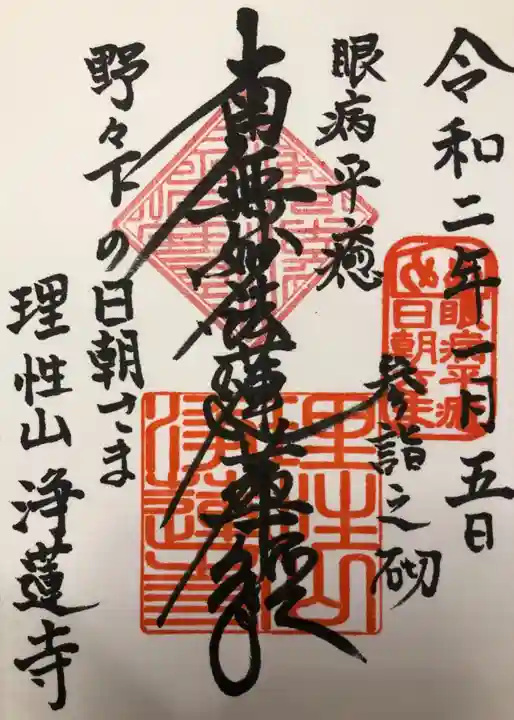 令和二年一月五日
眼病平癒
参詣之砌
南無妙法蓮華経
野々下の日朝さま
理性山 浄蓮寺
眼病平癒
日朝
理性山
浄蓮寺